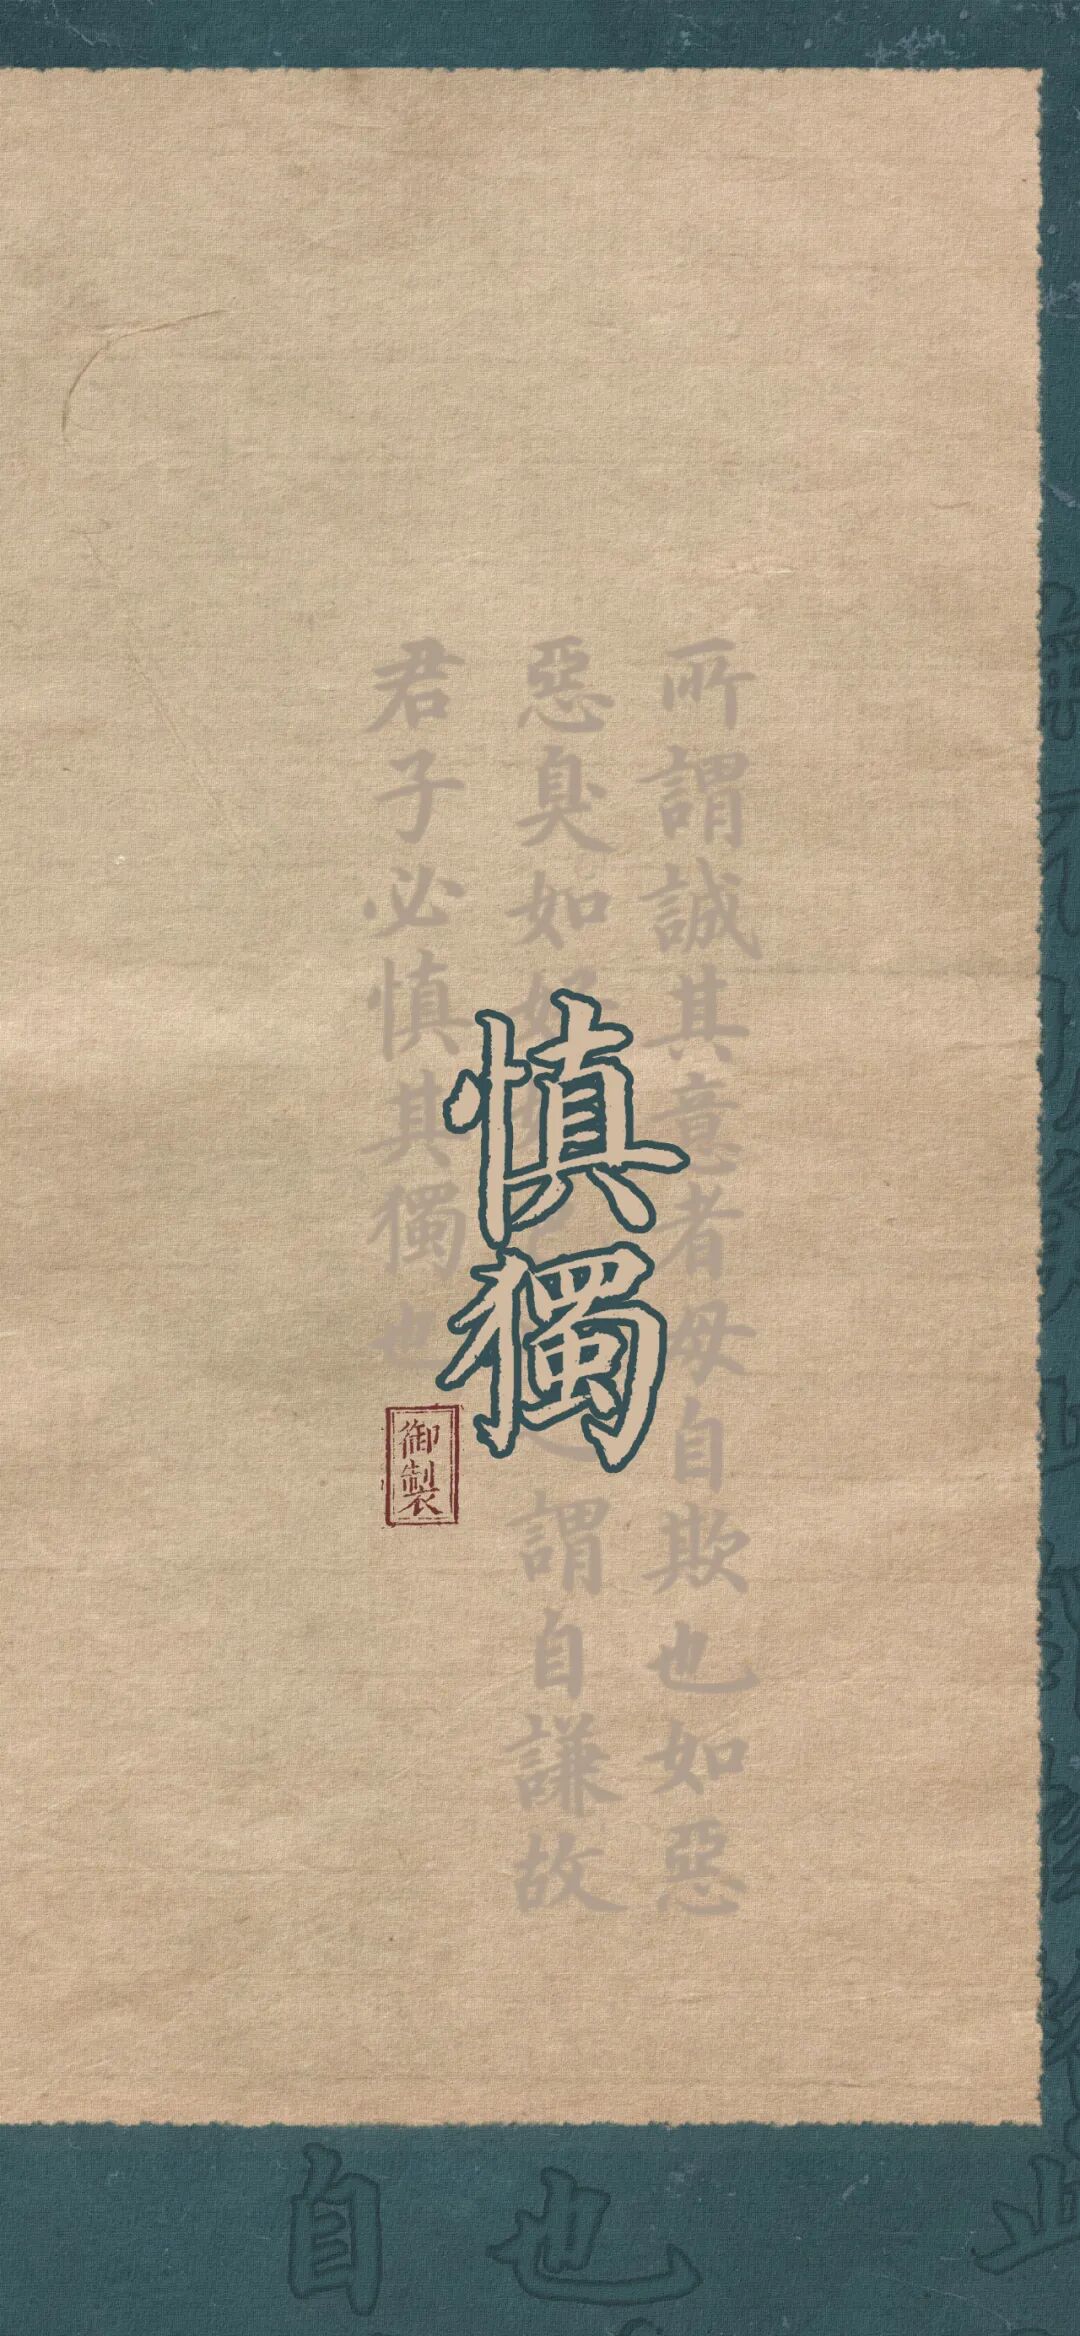 所謂誠其意者毋自欺也如惡
惡臭如好謂自謙故
君子必慎其獨也
慎獨
御製
自也